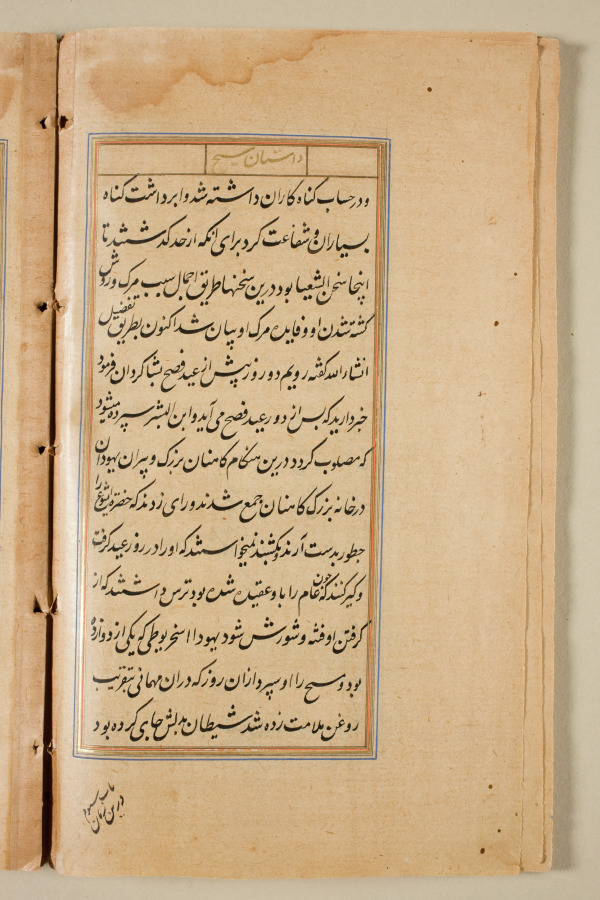 داستان مسیح
و در حساب کناه کاران داشته شد و ابرداشت کناه
بسیاران و شفاعت کرد برای آنکه از حد کذشتند تا
اینجا سخن الشعیا بود درین سخنها طریق اجمال سبب مرک و روش
کشته شدن او و فایده مرک او بیان شد اکنون بطریق تفضیل
انشاءالله کفته رویم دو روز پیش از عید فصح بشاکردان فرمود
خبر دارید که پس از دو روز عید فصح می آید و ابن البشر سپرده میشود
که مصلوب کردد درین هنکام کاهنان بزرک و پیران یهودان
در خانه بزرک کاهنان جمع شدند و رای زدند که حضرة ایشوع را
چطور بدست آرند و بکشند نمیخواستند که او را در روز عید کرفت
و کیر کنند که چون عام را با و عقیده شده بود ترس داشتند که از
کرفتن او فتنه و شورش شود یهودا اسخریوطی که یکی از دوازده
بود مسیح را او سپرد از ان روز که در ان مهمانی بتقریب
روغن ملامت زده شد شیطان بدلش جای کرده بود
درین زمان